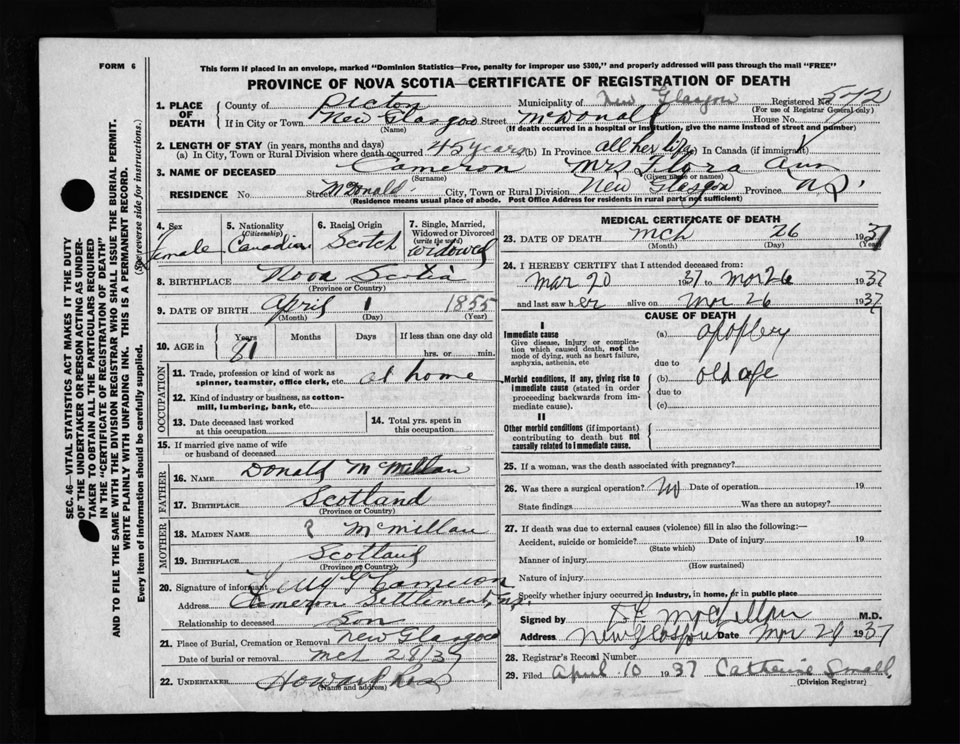 FORM 6
This form if placed in an envelope, marked "Dominion Statistics—Free, penalty for improper use $300," and properly addressed will pass through the mail "FREE"
PROVINCE OF NOVA SCOTIA—CERTIFICATE OF REGISTRATION OF DEATH
1. PLACE OF DEATH
County of Pictou Municipality of New Glasgow Registered No. 572
(For use of Registrar General only)
If in City or Town New Glasgow Street McDonald House No.
(Name) (If death occurred in a hospital or institution, give the name instead of street and number)
2. LENGTH OF STAY (in years, months and days)
(a) In City, Town or Rural Division where death occurred 45 years (b) In Province all her life (c) In Canada (if immigrant)
3. NAME OF DECEASED Cameron Mrs Flora Ann
(Surname) (Given name or names)
RESIDENCE No. Street McDonald City, Town or Rural Division New Glasgow Province N.S.
(Residence means usual place of abode. Post Office Address for residents in rural parts not sufficient)
4. Sex Female
5. Nationality (Citizenship) Canadian
6. Racial Origin Scotch
7. Single, Married, Widowed or Divorced (write the word) Widowed
8. BIRTHPLACE Nova Scotia
(Province or Country)
9. DATE OF BIRTH April 1 1855
(Month) (Day) (Year)
10. AGE in Years Months Days If less than one day old
81 hrs. or min.
OCCUPATION
11. Trade, profession or kind of work as spinner, teamster, office clerk, etc. at home
12. Kind of industry or business, as cotton-mill, lumbering, bank, etc.
13. Date deceased last worked at this occupation
14. Total yrs. spent in this occupation
15. If married give name of wife or husband of deceased
FATHER
16. NAME Donald McMillan
17. BIRTHPLACE Scotland
(Province or Country)
MOTHER
18. MAIDEN NAME ? McMillan
19. BIRTHPLACE Scotland
(Province or Country)
20. Signature of informant Cameron
Address Cameron Settlement, N.S.
Relationship to deceased Son
21. Place of Burial, Cremation or Removal New Glasgow
Date of burial or removal Mch 28/37
22. UNDERTAKER Howard
(Name and address)
MEDICAL CERTIFICATE OF DEATH
23. DATE OF DEATH Mch 26 1937
(Month) (Day) (Year)
24. I HEREBY CERTIFY that I attended deceased from:
Mar 20 1937 to Mar 26 1937
and last saw her alive on Mar 26 1937
CAUSE OF DEATH
I
Immediate cause
Give disease, injury or complication which caused death, not the mode of dying, such as heart failure, asphyxia, asthenia, etc
(a) apoplexy
due to
Morbid conditions, if any, giving rise to immediate cause (stated in order proceeding backwards from immediate cause).
(b) old age
due to
(c)
II
Other morbid conditions (if important) contributing to death but not causally related to immediate cause.
25. If a woman, was the death associated with pregnancy?
26. Was there a surgical operation? No Date of operation 19
State findings Was there an autopsy?
27. If death was due to external causes (violence) fill in also the following:—
Accident, suicide or homicide? Date of injury 19
(State which)
Manner of injury
(How sustained)
Nature of injury
Specify whether injury occurred in industry, in home, or in public place
Signed by M.D.
Address New Glasgow Date Mar 29 1937
28. Registrar's Record Number
29. Filed April 10 1937 Catherine Small
(Division Registrar)
SEC. 46—VITAL STATISTICS ACT MAKES IT THE DUTY
OF THE UNDERTAKER OR PERSON ACTING AS UNDERTAKER TO OBTAIN ALL THE PARTICULARS REQUIRED
IN THE "CERTIFICATE OF REGISTRATION OF DEATH"
AND TO FILE THE SAME WITH THE DIVISION REGISTRAR WHO SHALL ISSUE THE BURIAL PERMIT.
WRITE PLAINLY WITH UNFADING INK. THIS IS A PERMANENT RECORD.
Every item of information should be carefully supplied. (See reverse side for instructions.)